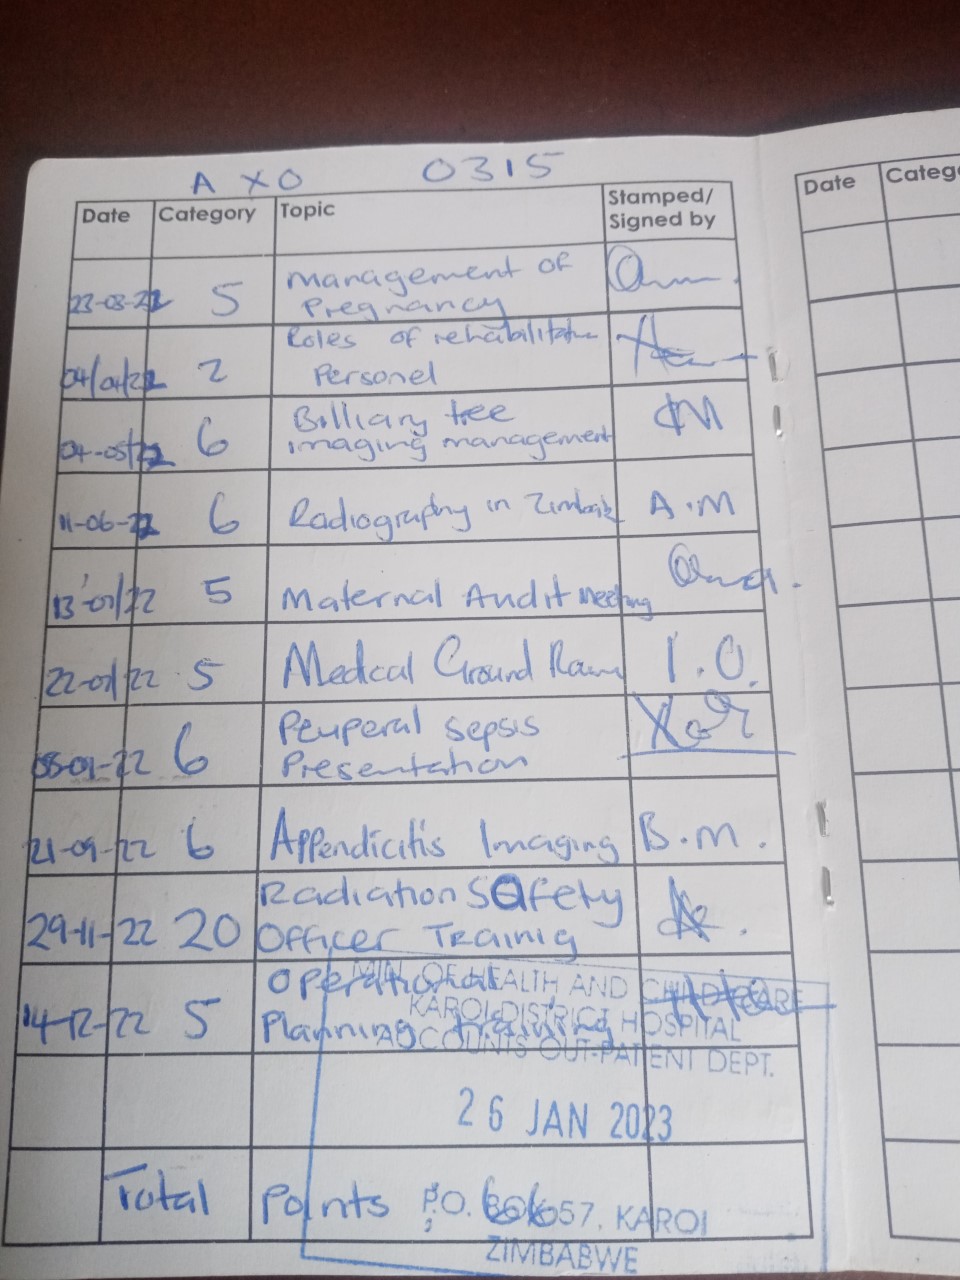 A X0 0315
Date Category Topic Stamped/
Signed by
23-03-22 5 Management of
Pregnancy
04/04/22 2 Roles of rehabilitative
Personel
04-05/22 6 Billiary tree
imaging management CM
11-06-22 6 Radiography in Zimbabwe A.M
13-07/22 5 Maternal Audit Meeting
22-07/22 5 Medical Ground Round I.O.
6 Peuperal sepsis
Presentation
21-09-22 6 Appendicitis Imaging B.M.
29-11-22 20 Radiation Safety
Officer Trainig
14-12-22 5 Operational
Planning training
MIN. OF HEALTH AND CHILD CARE
KAROI DISTRICT HOSPITAL
ACCOUNTS OUT-PATIENT DEPT.
26 JAN 2023
Total Points : 66
P.O. BOX 57, KAROI
ZIMBABWE
Date